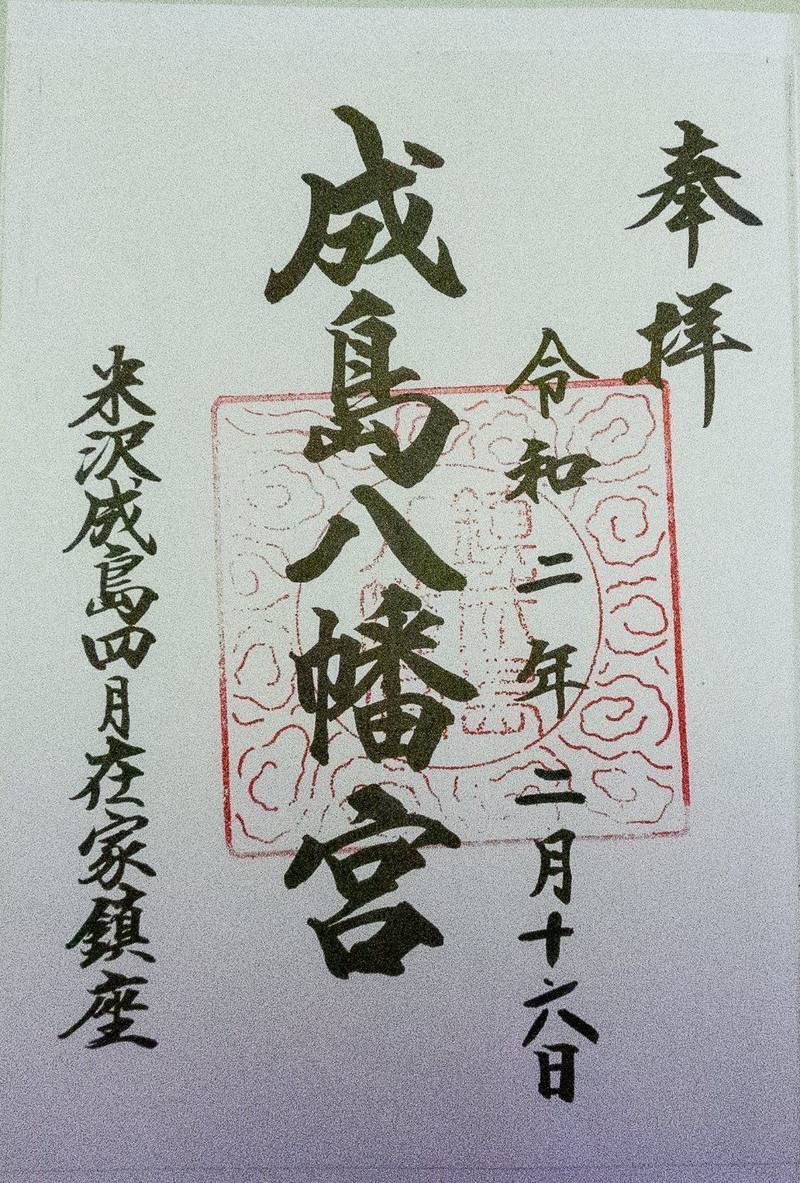 奉拝
令和二年二月十六日
成島八幡宮
米沢成島四月在家鎮座